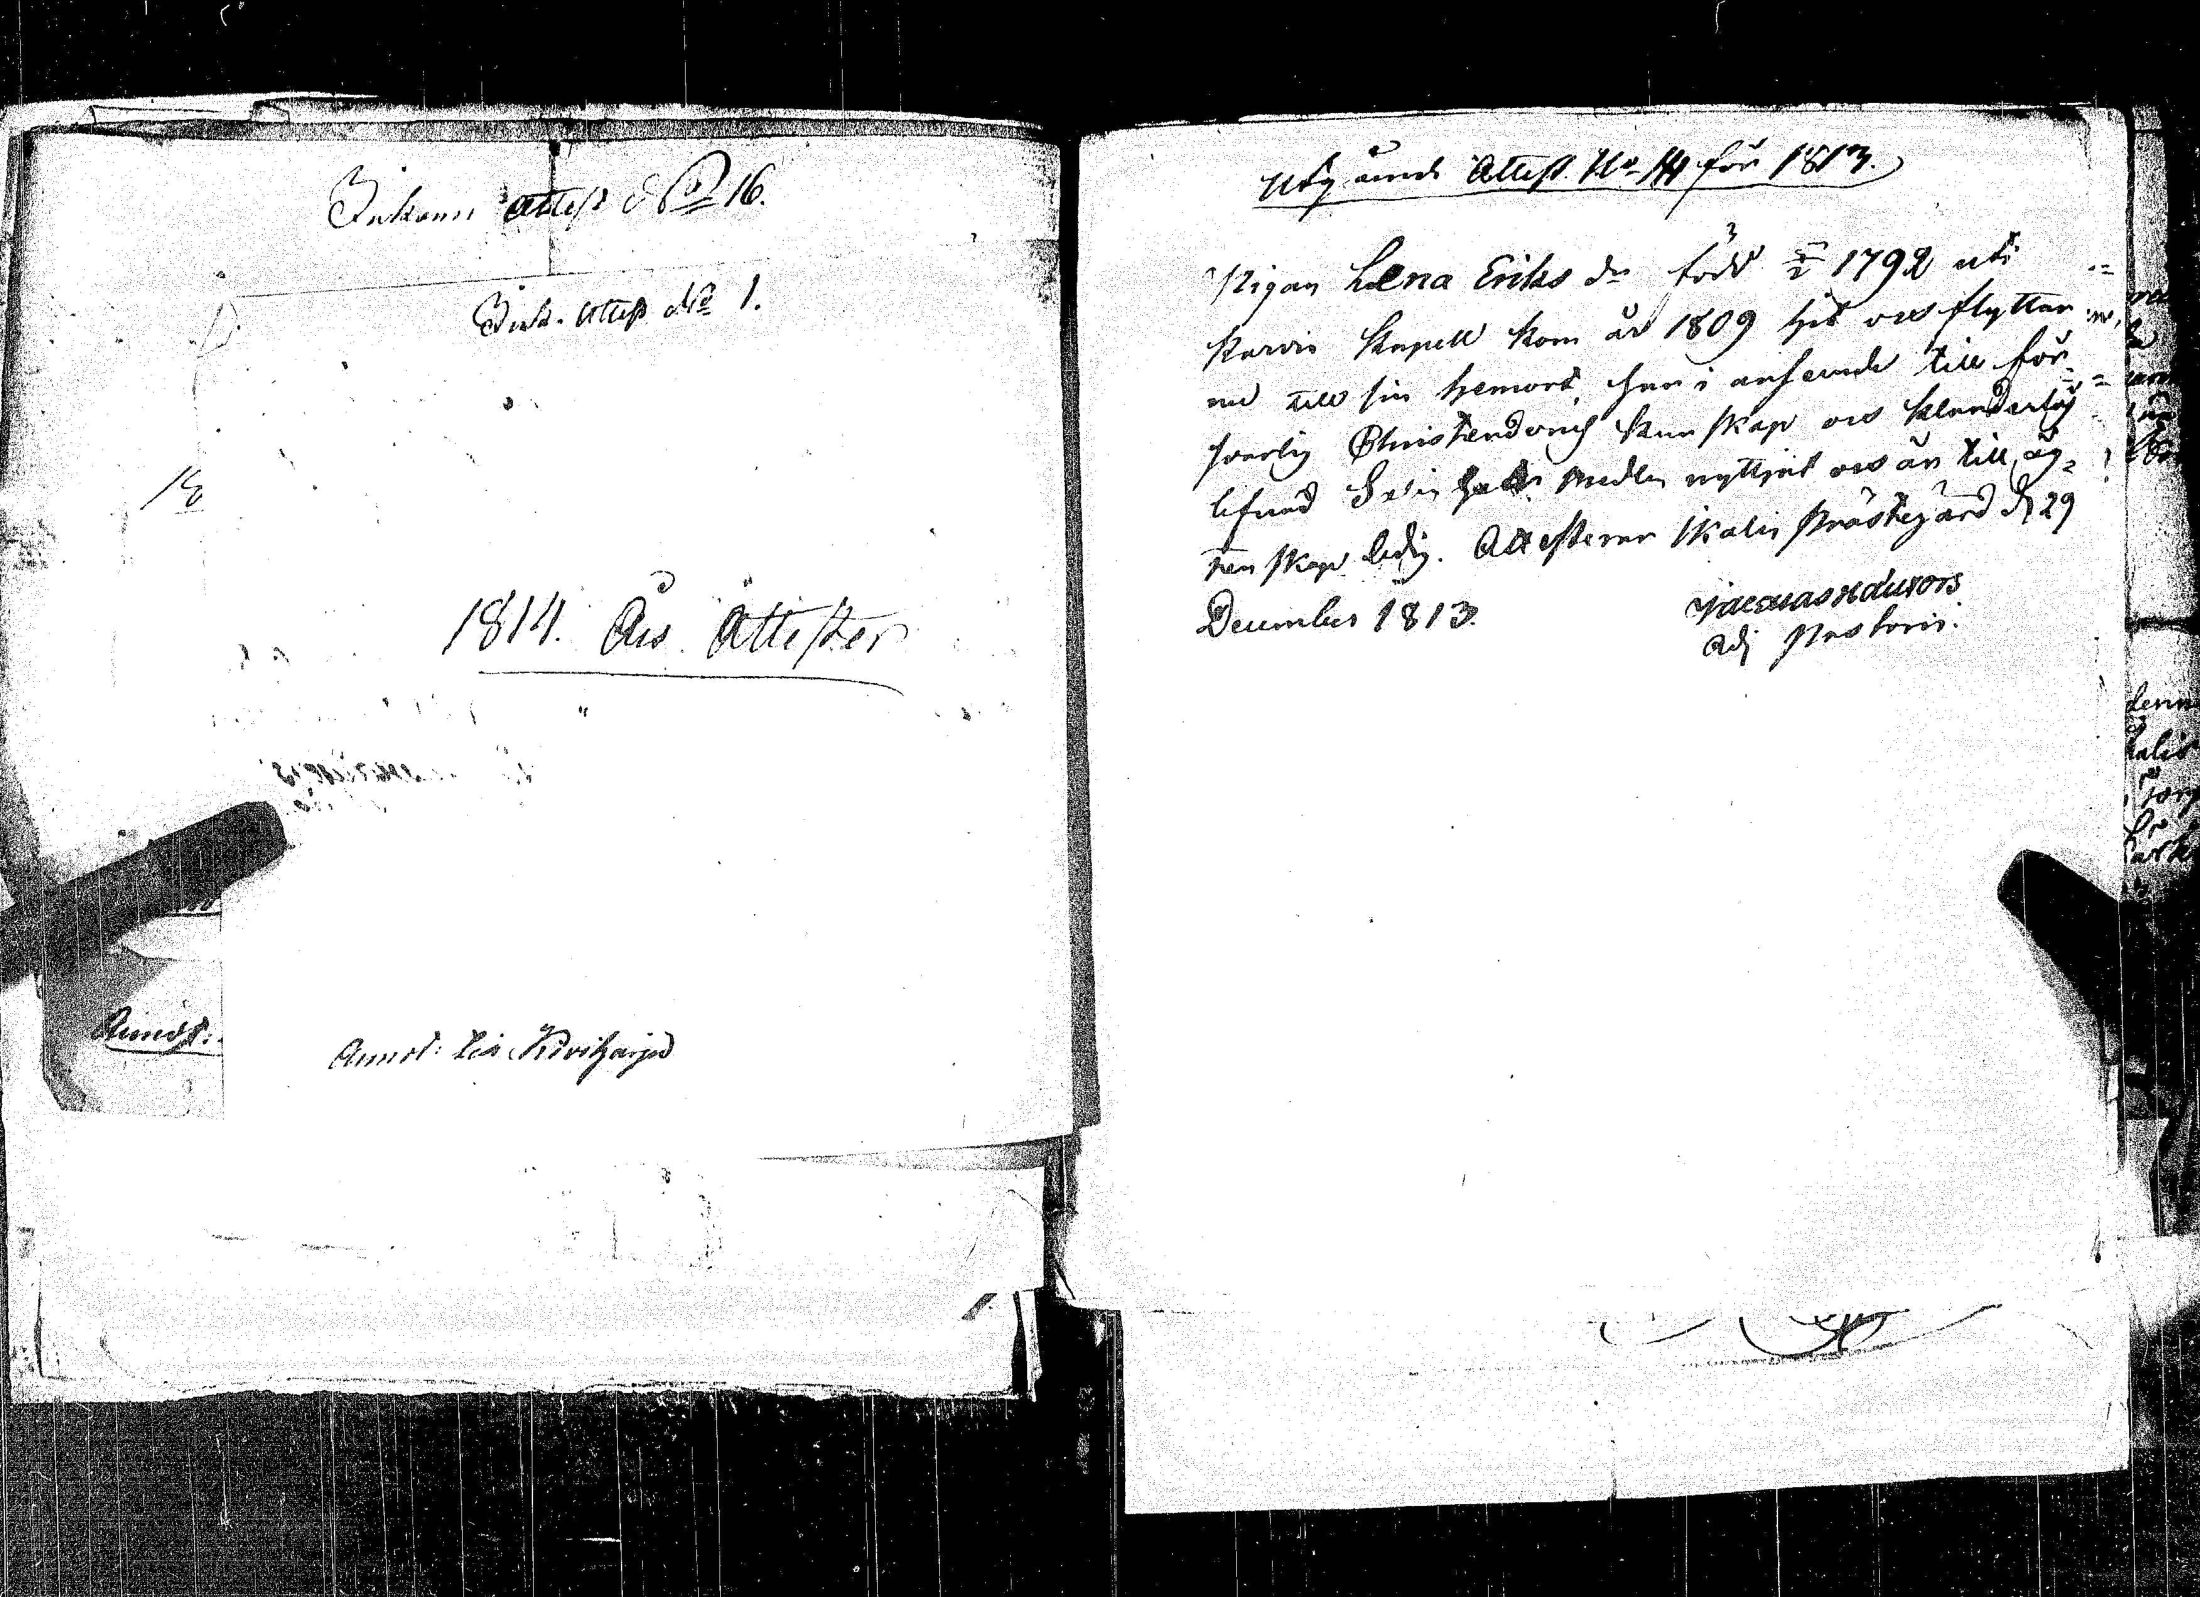 Inkomm attest No 16.
Ink. Attest No 1.
1814. Års Attester
Annot:
Annot: till Kiviharju
Utgående Attest No 14 för 1813.
Pigan Lena Eriks dr född 3/2 1792 uti
Karvia Kapell kom år 1809 hit och flyttar
nu till sin hemort, har i anseende till för-
svarlig Christendoms kunskap och klanderlös
lefnad H: H: Nattvard nyttjat och är till äg-
tenskap ledig. Attesterar Ikalis Prästegård d 29
December 1813.
Adj Pastoris.